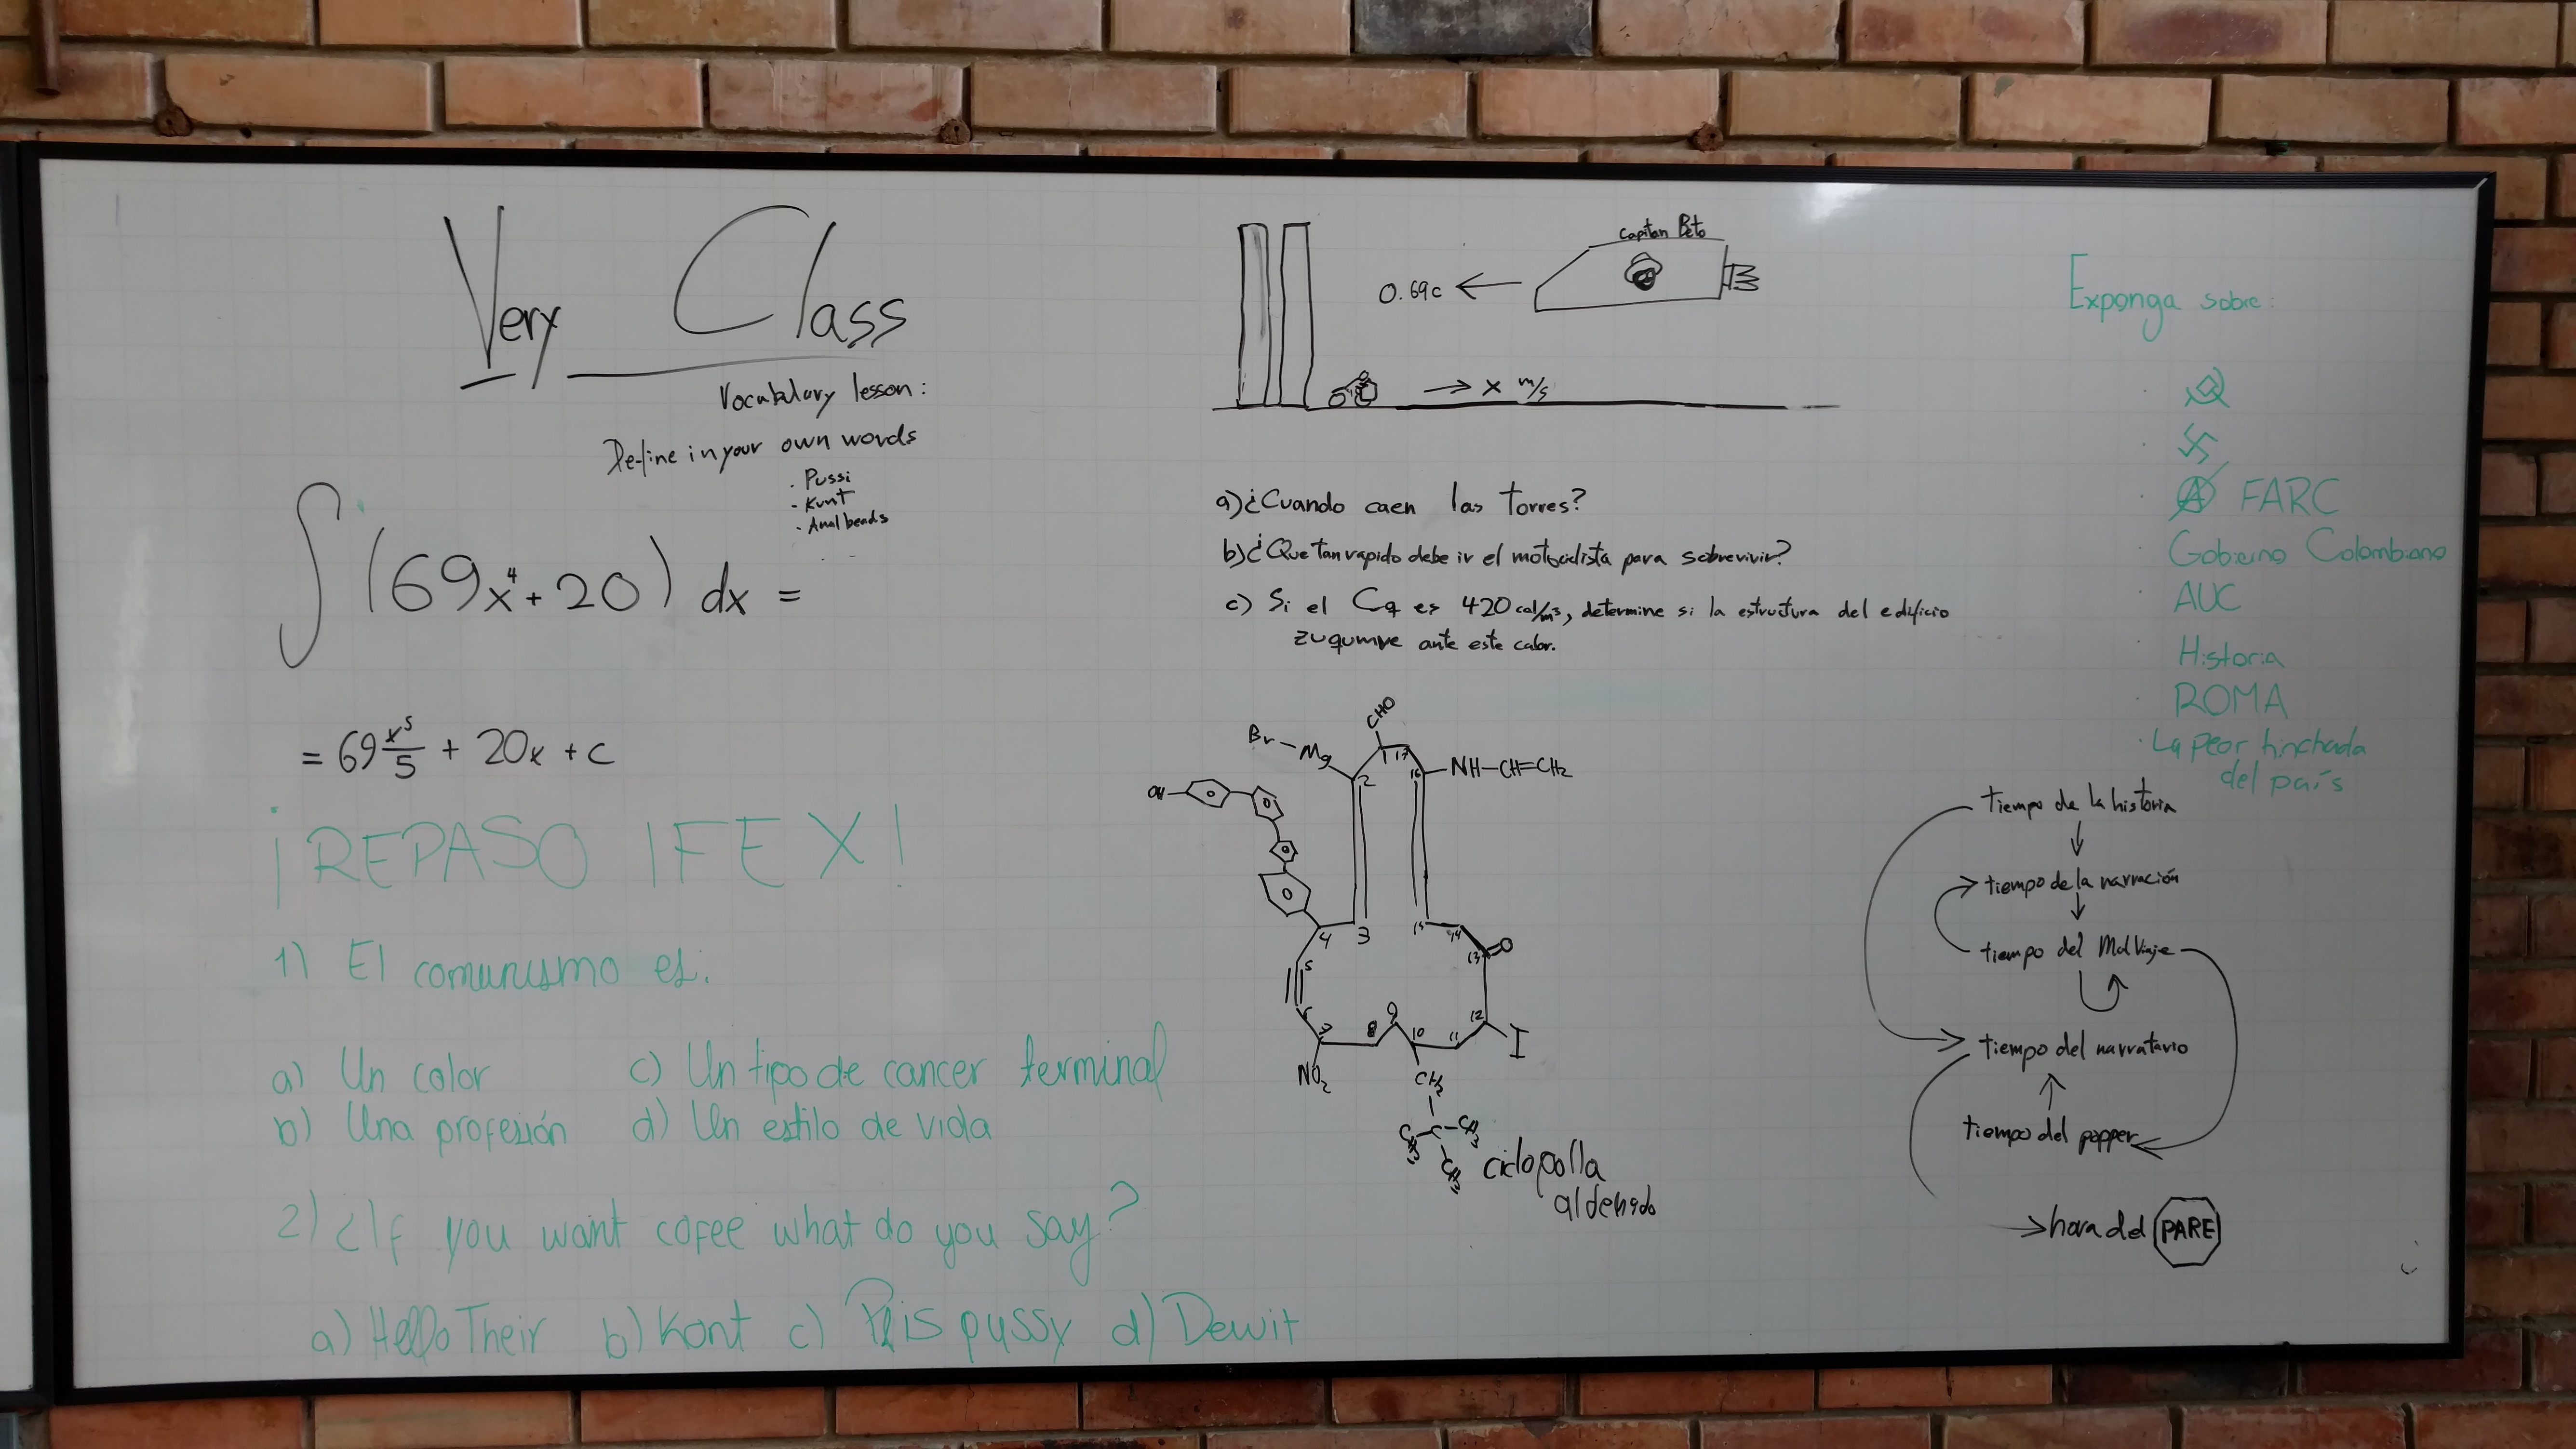 Very Class
Vocabulary lesson:
Define in your own words
. Pussi
- Kunt
. Anal beads
∫(69x⁴+20) dx =
= 69 x⁵/5 + 20x + c
¡REPASO IFEX!
1) El comunismo es.
a) Un color
b) Una profesión
c) Un tipo de cancer terminal
d) Un estilo de vida
2) ¿If you want cofee what do you say?
a) Hello Their b) Kont c) Plis pussy d) Dewit
Capitan Beto
0.69c ←
→ x m/s
a) ¿Cuando caen las torres?
b) ¿Que tan rapido debe ir el motociclista para sobrevivir?
c) Si el Cq es 420 cal/m³, determine si la estructura del edificio
zuqumve ante este calor.
CHO
Br-Mg
17
2
16
NH-CH=CH₂
OH
4
3
15
14
O
13
5
6
7
8
9
10
11
12
I
NO₂
CH₂
CH₃ C CH₃
CH₃
ciclopolla
aldehido
Exponga sobre:
☭
卐
Ⓐ FARC
Gobierno Colombiano
AUC
Historia
ROMA
. La peor hinchada
del país
tiempo de la historia
↓
→ tiempo de la narración
↓
tiempo del Mal Viaje
→ tiempo del narratario
↑
tiempo del popper
→ hora del PARE